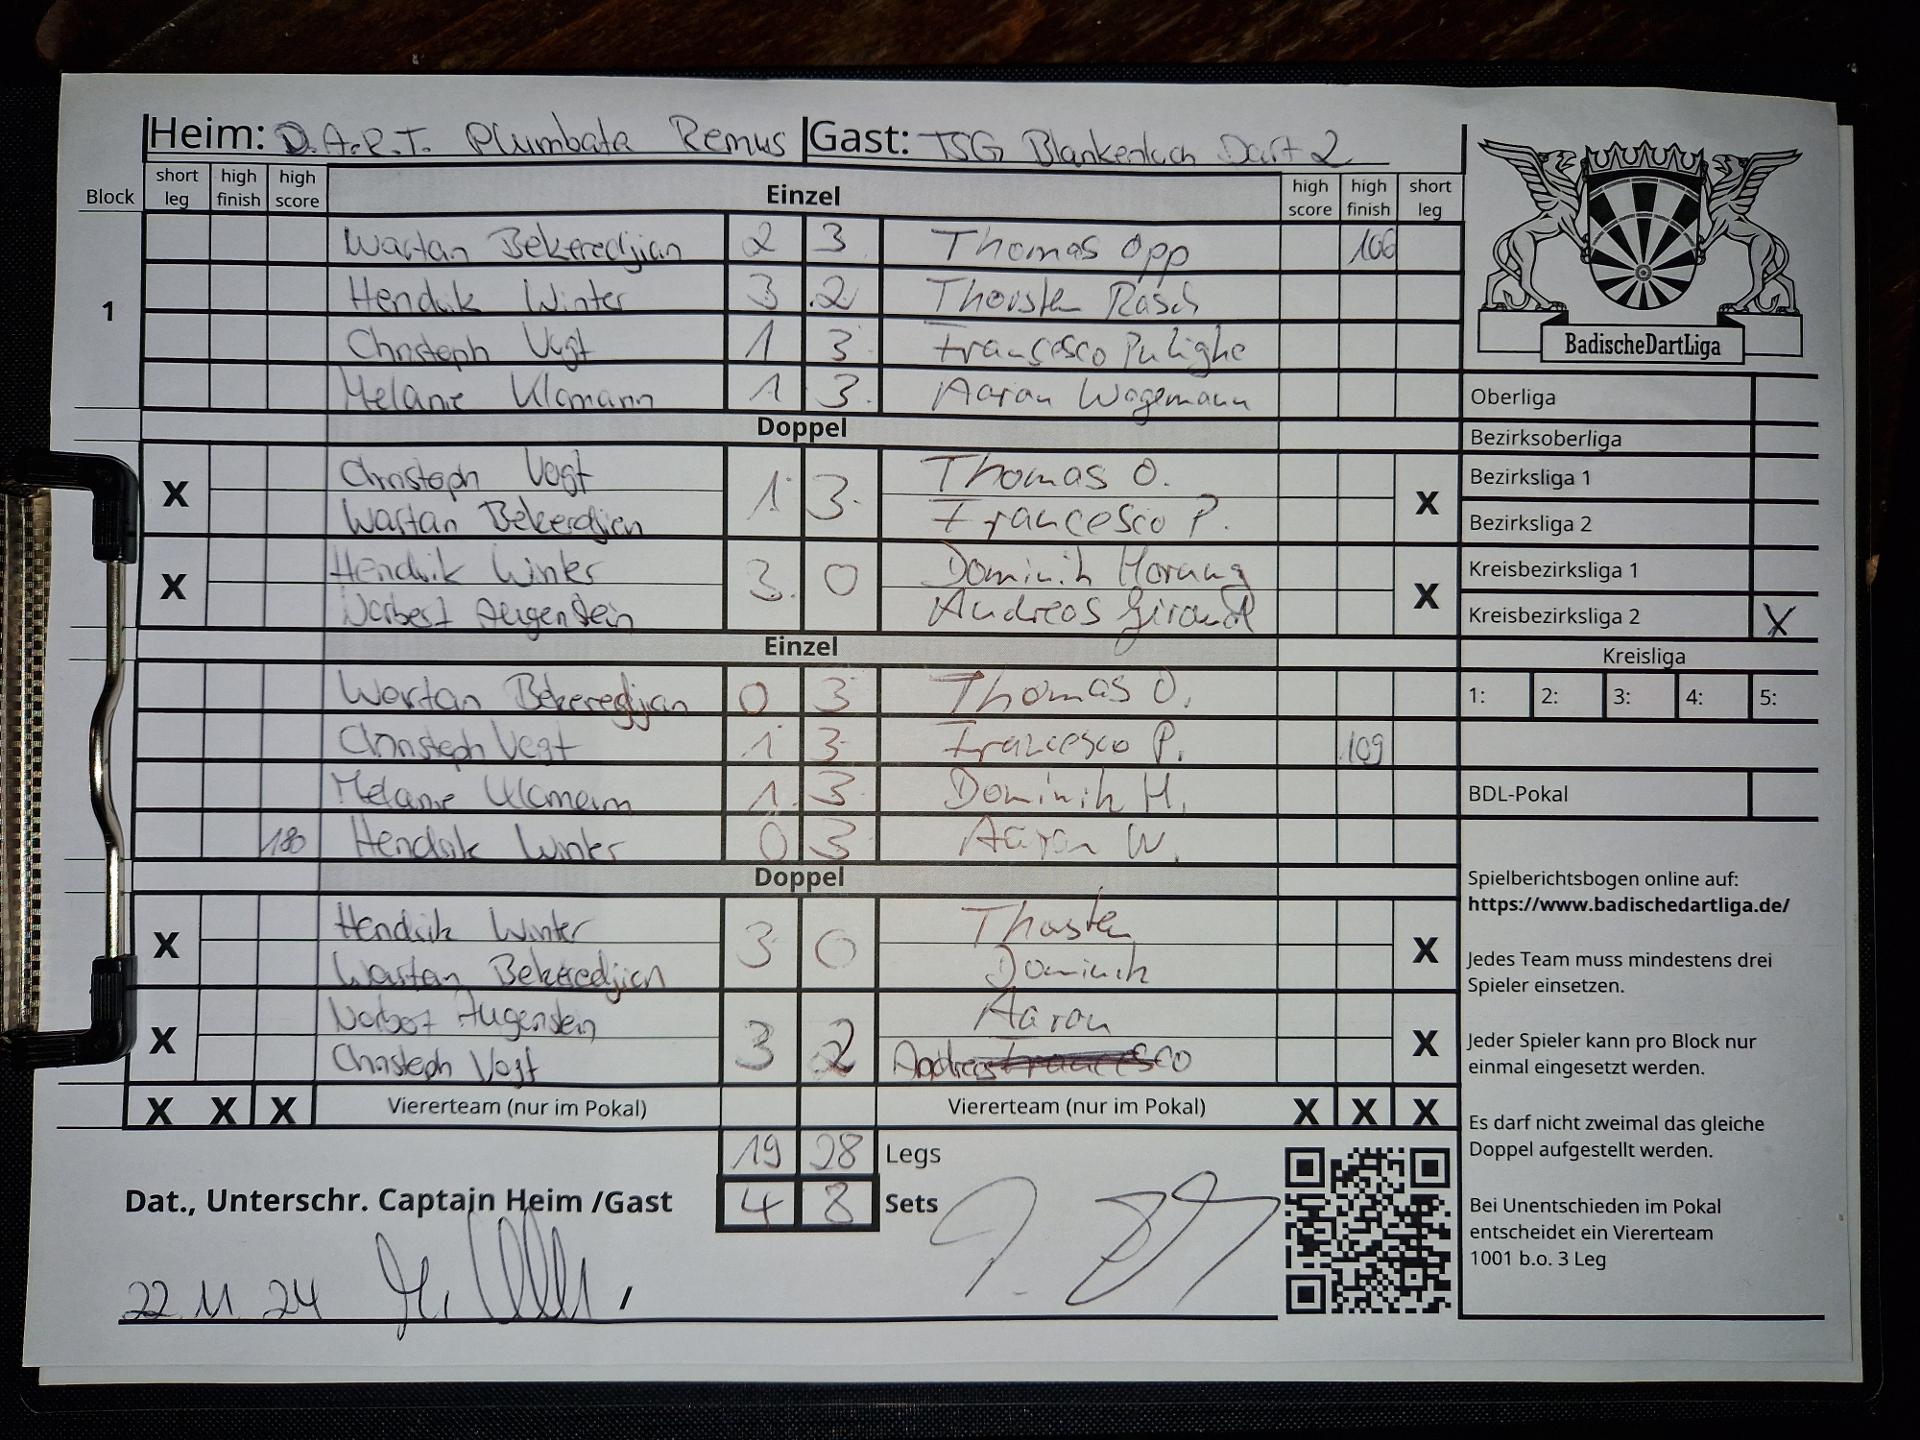 Heim: D.A.R.T. Plumbata Remus Gast: TSG Blankenloch Dart 2
Block short leg high finish high score Einzel high score high finish short leg
Wartan Bekeredjian 2 3 Thomas Opp 106
1 Hendrik Winter 3 2 Thorsten Rasch
Christoph Vogt 1 3 Francesco Pulighe
Melanie Klamann 1 3 Aaron Wagemann
Doppel
Christoph Vogt Thomas O.
X 1 3 X
Wartan Bekerdjien Francesco P.
Hendrik Winter Dominik Hornung
X 3 0 X
Norbert Augenstein Andreas
Einzel
Wartan Bekeredjian 0 3 Thomas O.
Christoph Vogt 1 3 Francesco P. 109
Melanie Klamann 1 3 Dominik H.
180 Hendrik Winter 0 3 Aaron W.
Doppel
Hendrik Winter Thorsten
X 3 0 X
Wartan Bekeredjian Dominik
Norbert Augenstein Aaron
X 3 2 X
Christoph Vogt Andreas
X X X Viererteam (nur im Pokal) Viererteam (nur im Pokal) X X X
19 28 Legs
Dat., Unterschr. Captain Heim /Gast 4 8 Sets
22.11.24 /
BadischeDartLiga
Oberliga
Bezirksoberliga
Bezirksliga 1
Bezirksliga 2
Kreisbezirksliga 1
Kreisbezirksliga 2 X
Kreisliga
1: 2: 3: 4: 5:
BDL-Pokal
Spielberichtsbogen online auf:
https://www.badischedartliga.de/
Jedes Team muss mindestens drei
Spieler einsetzen.
Jeder Spieler kann pro Block nur
einmal eingesetzt werden.
Es darf nicht zweimal das gleiche
Doppel aufgestellt werden.
Bei Unentschieden im Pokal
entscheidet ein Viererteam
1001 b.o. 3 Leg